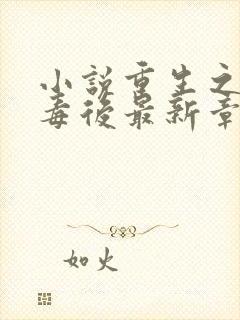 小説重生之
毒後最新章
如火